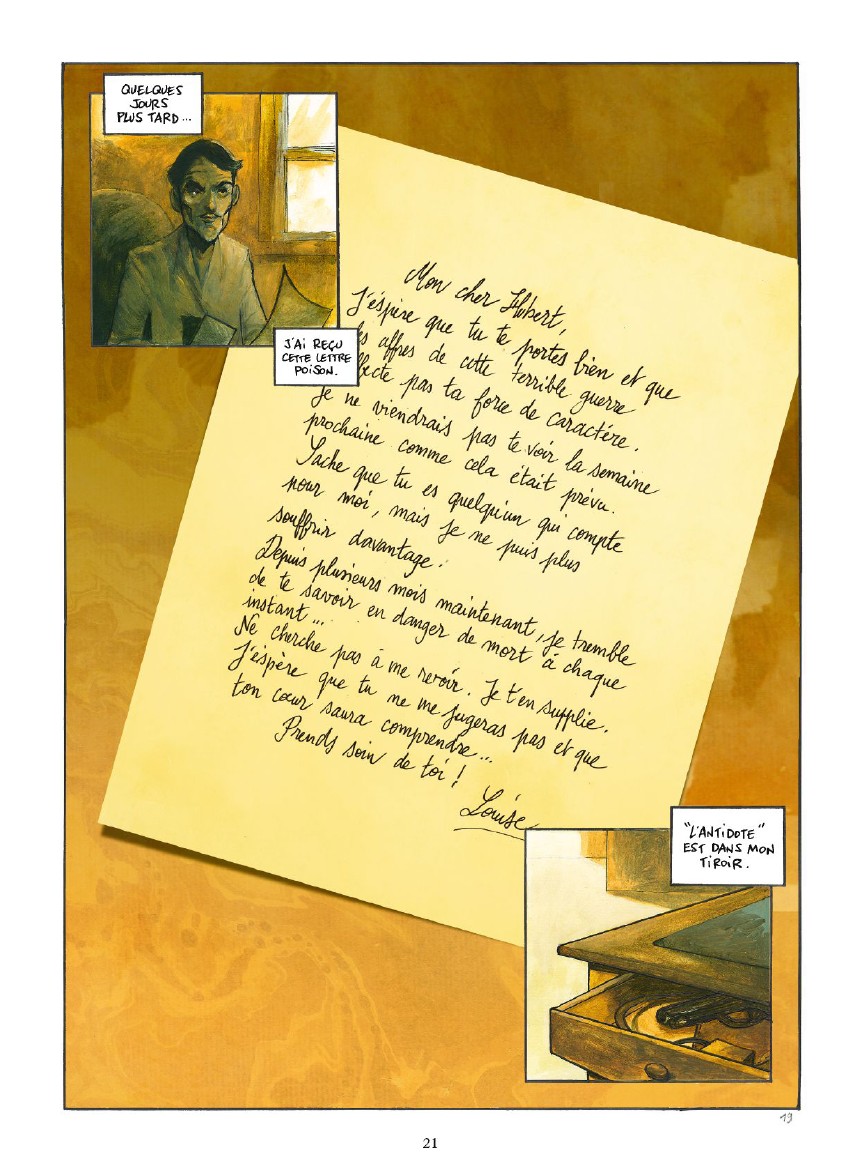 QUELQUES
JOURS
PLUS TARD...
Mon cher Hubert,
J'éspère que tu te portes bien et que
affres de cette terrible guerre
pas ta force de caractére.
Je ne viendrais pas te voir la semaine
prochaine comme cela était prévu.
Sache que tu es quelqu'un qui compte
pour moi, mais je ne puis plus
souffrir davantage.
Depuis plusieurs mois maintenant, je tremble
de te savoir en danger de mort à chaque
instant...
Ne cherche pas à me revoir. Je t'en supplie.
J'éspère que tu ne me jugeras pas et que
ton cœur saura comprendre...
Prends soin de toi !
Louise
J'AI REÇU
CETTE LETTRE
POISON.
"L'ANTIDOTE"
EST DANS MON
TIROIR.
19
21